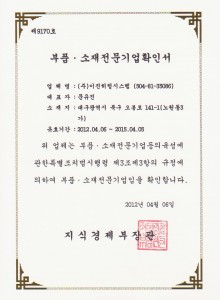 제9170호
부품 · 소재전문기업확인서
업 체 명 : (주)이진히팅시스템 (504-81-35086)
대 표 자 : 문유진
소 재 지 : 대구광역시 북구 오봉로 141-1(노원동3
가)
유효기간 : 2012.04.06 ~ 2015.04.05
위 업체는 부품 · 소재전문기업등의육성에
관한특별조치법시행령 제3조제3항의 규정에
의하여 부품 · 소재전문기업임을 확인합니다.
2012년 04월 06일
지식경제부장관